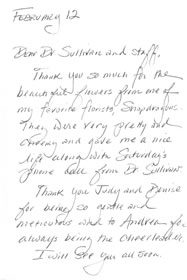 February 12
Dear Dr Sullivan and staff,
Thank you so much for the
beautiful flowers from one of
my favorite florists,
They were very pretty and
cheery and gave me a nice
lift along with Saturday's
phone call from Dr Sullivan.
Thank you Judy and Denise
for being so and
meticulous and to Andrea for
always being the cheerleader.
I will see you all soon.